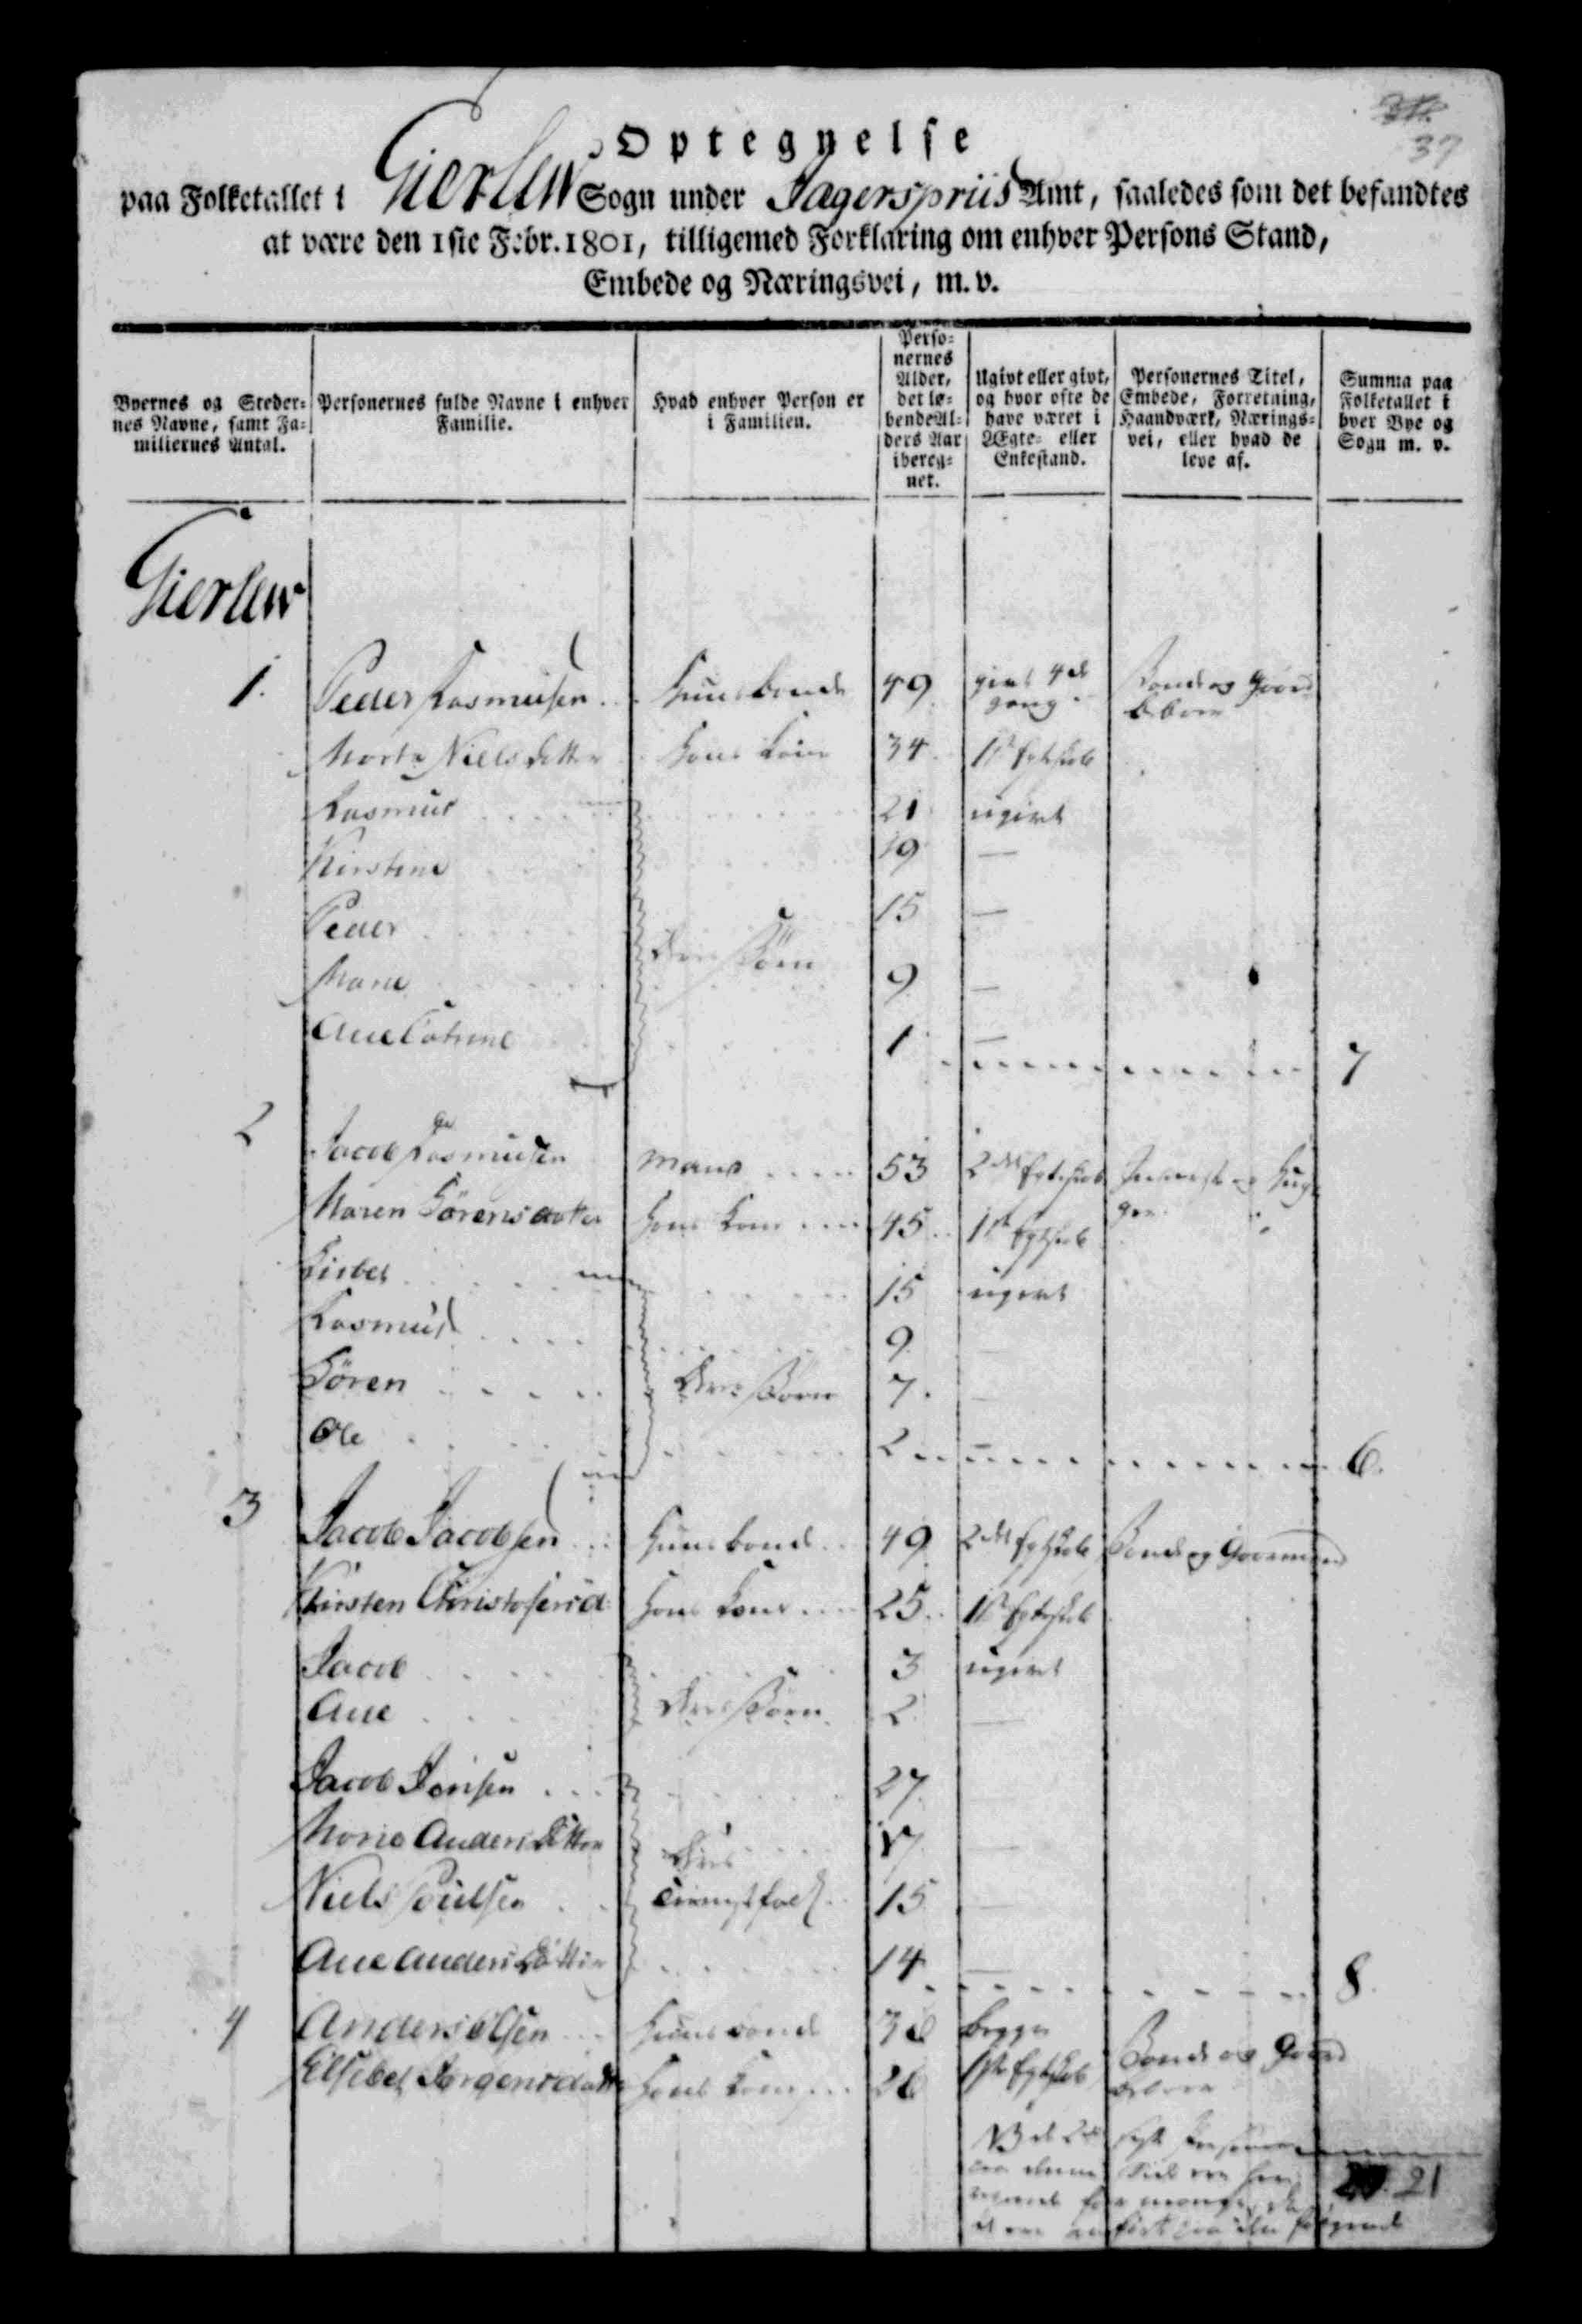 37
Optegnelse
paa Folketallet i Gierlew Sogn under Jagerspriis Amt, saaledes som det befandtes
at være den 1ste Febr. 1801, tilligemed Forklaring om enhver Persons Stand,
Embede og Næringsvei, m. v.
Byernes og Steder-
nes Navne, samt Fa-
miliernes Antal.
Personernes fulde Navne i enhver
Familie.
Hvad enhver Person er
i Familien.
Perso-
nernes
Alder,
det lø-
bende Al-
ders Aar
ibereg-
net.
Ugivt eller givt,
og hvor ofte de
have været i
Ægte- eller
Enkestand.
Personernes Titel,
Embede, Forretning,
Haandværk, Nærings-
vei, eller hvad de
leve af.
Summa paa
Folketallet i
hver Bye og
Sogn m. v.
Gierlew
1. Peder Rasmusen Huusbonde 49 givt 4de Bonde og Gaard
gang beboer
Marta Nielsdatter hans kone 34 1st Egteskab
Rasmus 21 ugivt
Kirstine 19 —
Peder 15 —
Deres Børn
Marie 9 —
Ane Catrine 1 — 7
2 Jacob Rasmusen Mand 53 2det Egteskab
Maren Sörensdatter hans kone 45 1st Egteskab
Lisbet 15 ugivt
Rasmus 9
Sören Deres Børn 7
Ole 2 — 6
3 Jacob Jacobsen Huusbonde 49 2det Egteskab Bonde og Gaardmand
Kirsten Christofersd hans kone 25 1st Egteskab
Jacob 3 ugivt
Ane Deres Børn 2 —
Jacob Jensen 27
Marie Anders Datter Deres 17 —
Niels Poulsen Tienistfolk 15 —
Ane Anders Datter 14 — 8
4 Anders Olsen Huusbonde 36 begge Bonde og Gaard
Elsebet Jørgensdatter hans kone 26 1ste Egteskab beboer
NB de 2de
21